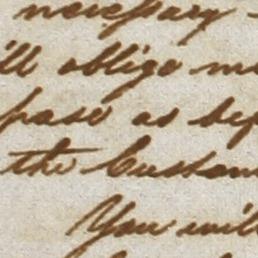 necessary
ill oblige me
pase as bef
the Custom
You will